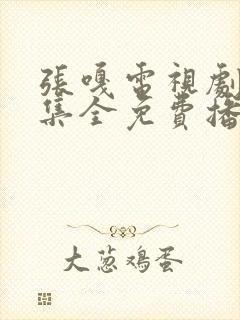 張嘎電視劇
集全免費播
大葱鸡蛋